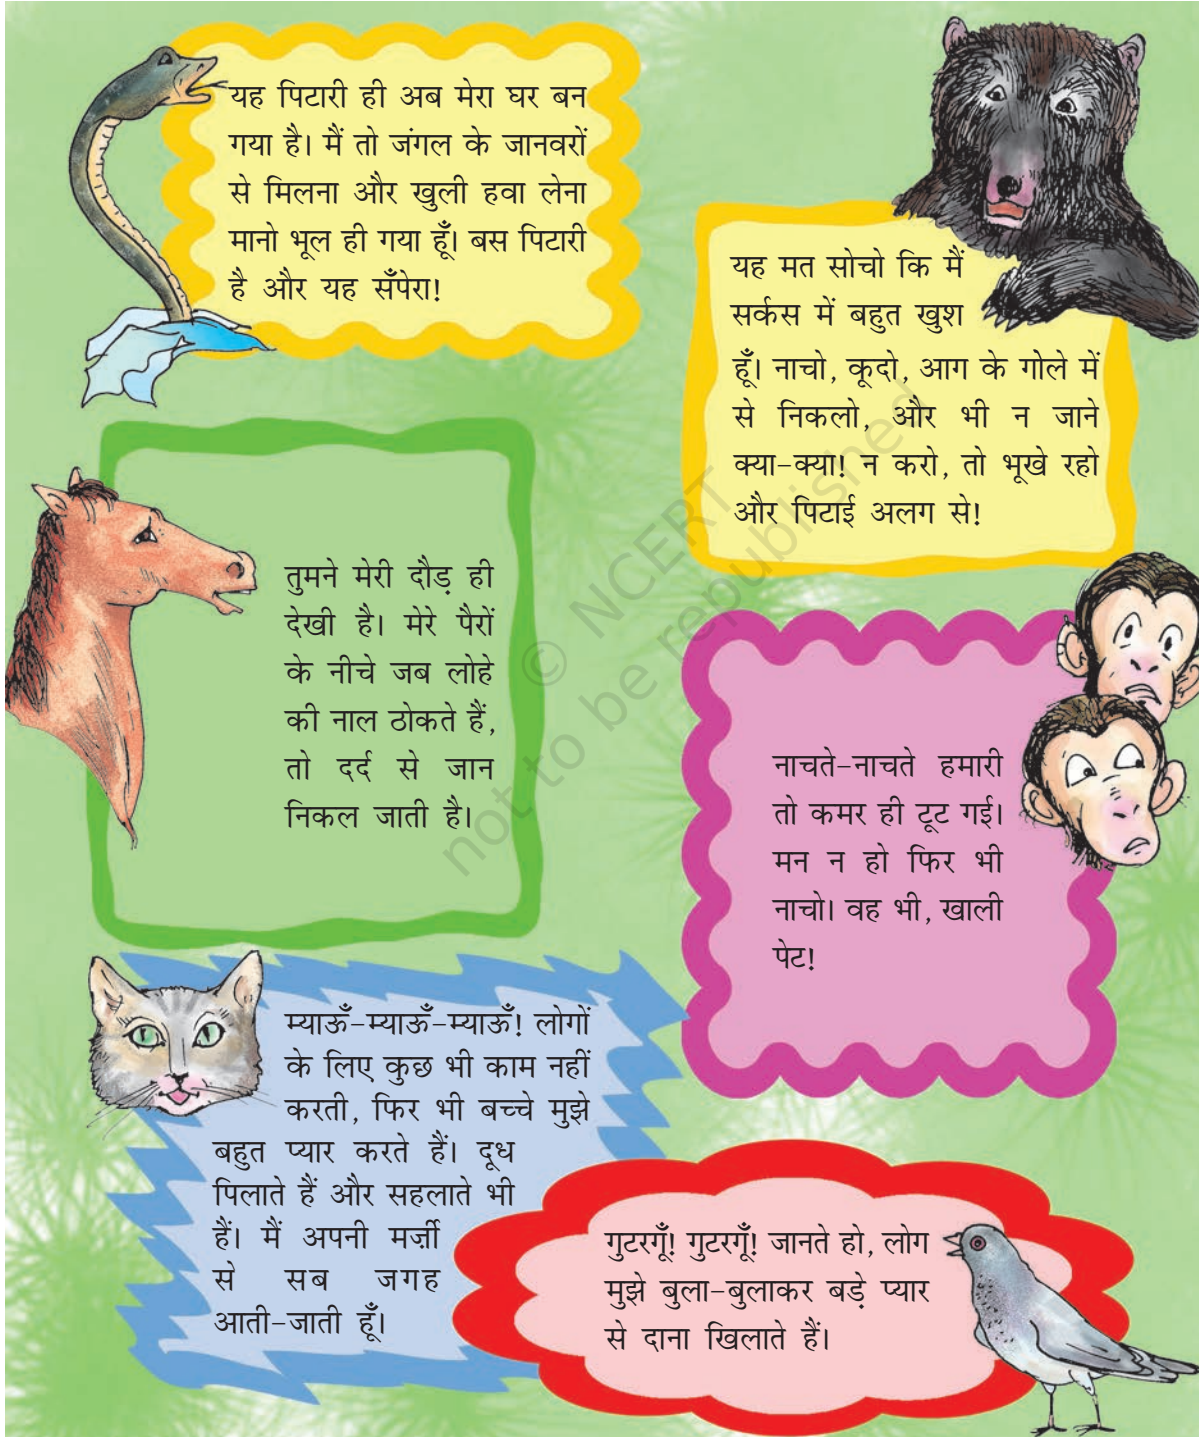 यह पिटारी ही अब मेरा घर बन
गया है। मैं तो जंगल के जानवरों
से मिलना और खुली हवा लेना
मानो भूल ही गया हूँ। बस पिटारी
है और यह सँपेरा!
यह मत सोचो कि मैं
सर्कस में बहुत खुश
हूँ। नाचो, कूदो, आग के गोले में
से निकलो, और भी न जाने
क्या-क्या! न करो, तो भूखे रहो
और पिटाई अलग से!
तुमने मेरी दौड़ ही
देखी है। मेरे पैरों
के नीचे जब लोहे
की नाल ठोकते हैं,
तो दर्द से जान
निकल जाती है।
नाचते-नाचते हमारी
तो कमर ही टूट गई।
मन न हो फिर भी
नाचो। वह भी, खाली
पेट!
म्याऊँ-म्याऊँ-म्याऊँ! लोगों
के लिए कुछ भी काम नहीं
करती, फिर भी बच्चे मुझे
बहुत प्यार करते हैं। दूध
पिलाते हैं और सहलाते भी
हैं। मैं अपनी मर्ज़ी
से सब जगह
आती-जाती हूँ।
गुटरगूँ! गुटरगूँ! जानते हो, लोग
मुझे बुला-बुलाकर बड़े प्यार
से दाना खिलाते हैं।
© NCERT
not to be republished